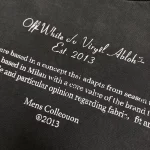 Off White Jo Virgil Abloh™
Est 2013
are based in a concept that adapts from season
based in Milan with a core value of the brand
and particular opinion regarding fabri-, fit an
Mens Collecuon
©2013